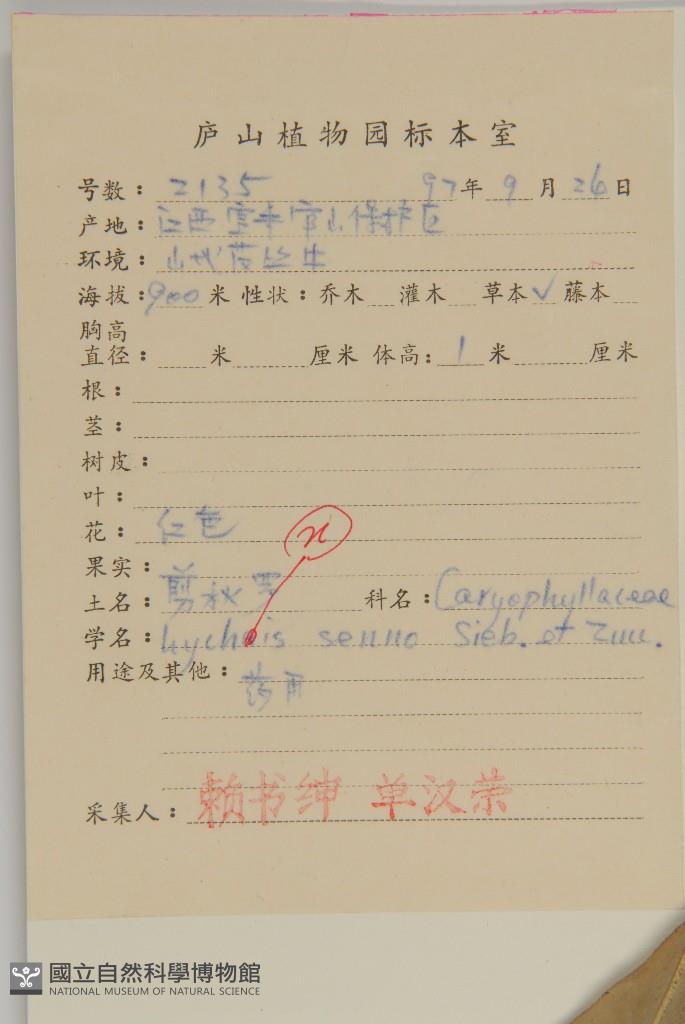 庐山植物园标本室
号数：2135 97年9月26日
产地：江西 官山保护区
环境：山
海拔：900米 性状：乔木 灌木 草本✓ 藤本
胸高
直径： 米 厘米 体高：1米 厘米
根：
茎：
树皮：
叶：
花：红色
n
果实：
土名：剪秋罗 科名：Caryophyllaceae
学名：Lychnis senno Sieb. et Zuu.
用途及其他：药用
采集人：赖书绅 单汉荣
國立自然科學博物館
NATIONAL MUSEUM OF NATURAL SCIENCE